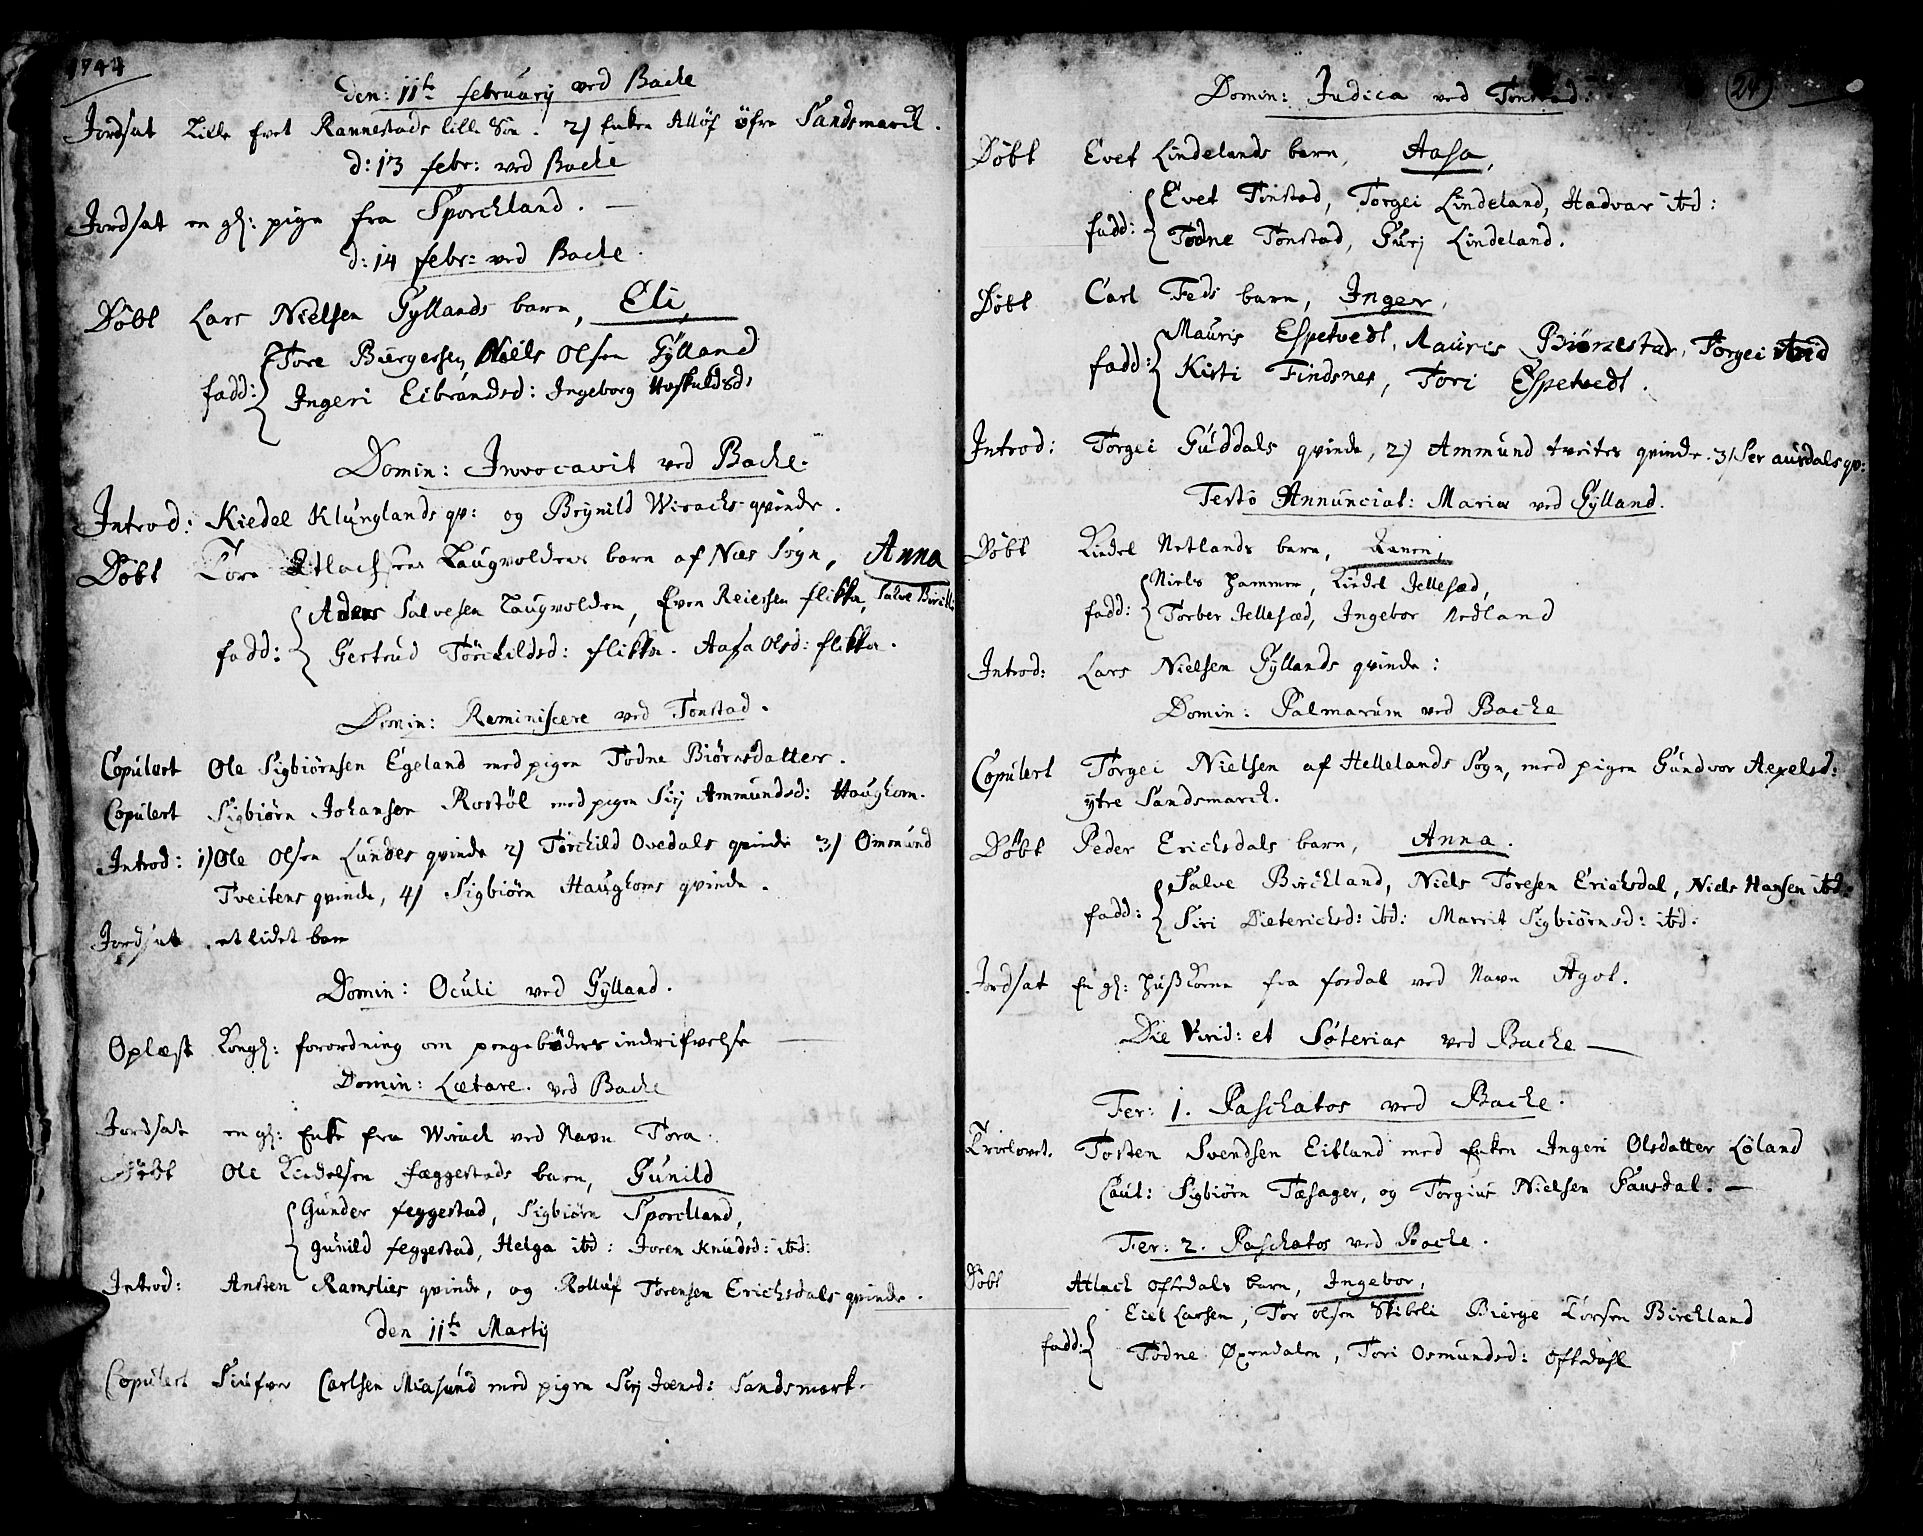 1744
den: 11te februarij ved Backe
Jordsat Lille Evet Rannestads lille Søn. 2) Enken Allöf öfre Sandsmarck.
d: 13 febr: ved Backe
Jordsat en gl: pige fra Sporckland. —
d: 14 febr: ved Backe.
Döbt Lars Nielsen Gyllands barn, Eli,
Tore Bürgersen, Niels Olsen Gÿlland
fadd: Ingeri Eibrandsd: Ingeborg Hoskuldsd:
Domin: Invocavit ved Backe.
Introd: Kiedel Klunglands qv: og Brynild Wirachs qvinde.
Döbt Tore Atlachsens Laugvoldens barn af Næs Sogn, Anna
Anders Salvesen Laugvolden, Even Reiersen flikka, Salve
fadd: Gertrud Törckildsd: flikka. Aasa Olsd: flikka.
Domin: Reminiscere ved Tonstad.
Copulert Ole Sigbiörnsen Egeland med pigen Todne Biörnsdatter.
Copulert Sigbiörn Johansen Rostöl med pigen Sirj Ammundsd: Haughom.
Introd: 1) Ole Olsen Lundes qvinde 2) Törckild Ovedals qvinde 3) Ommund
Tveitens qvinde, 4) Sigbiörn Haughoms qvinde.
Jordsat et lidet barn
Domin: Oculi ved Gÿlland.
Oplæst Kongl: forordning om pengebøders inddrifvelse —
Domin: Lætare. ved Backe
Jordsat en gl: Enke fra Wirack ved Navn Tora.
Döbt Ole Kiedelsen fæggestads barn, Gunild
Gunder feggestad, Sigbiörn Sporckland,
gunild feggestad, Helga ibd: Joren Knudsd: ibd:
Introd: Ansten Ramslies qvinde, og Rolluf Torensen Erichsdals qvinde.
den 11te Martij
Copulert Siufver Carlsen Miasund med pigen Sirj Joensd: Sandsmark.
24
Domin: Judica ved Tonstad:
Döbt Evet Lindelands barn, Aasa,
Evet Tonstad, Torgei Lindeland, Hadvar ibd:
fadd: Todne Tonstad, Gurj Lindeland.
Döbt Carl Feds barn, Inger,
Mauris Espetvedt, Mauris Biörnestad, Torgei ibid
fadd: Kisti Findsnes, Tori Espetvedt.
Introd: Torgei Guddals qvinde, 2) Ammund tveites qvinde. 3) Ser ausdals qv:
Festo Annunciat: Mariæ ved Gylland.
Döbt Kiedel Netlands barn, Karen,
Niels Hammer, Kiedel Jellesæd,
fadd: Torber Jellesæd, Ingebor Nedland
Introd: Lars Nielsen Gyllands qvinde:
Domin: Palmarum ved Backe
Copulert Torgei Nielsen af Hellelands Sogn, med pigen Gundvor Aexelsd:
ytre Sandsmarck.
Döbt Peder Erichsdals barn, Anna.
Salve Birckland, Niels Toresen Erichsdal, Niels Hansen ibd:
fadd: Siri Dieterichsd: ibd: Marrit Sigbiörnsd: ibd:
Jordsat En gl: Huskone fra fosdal ved Navn Agot.
Die Virid: et Söterias ved Backe —
Fer: 1. Paschatos ved Backe.
Trolovet. Tosten Svendsen Eikland med Enken Ingeri Olsdatter Löland
Caut: Sigbiörn Tæsager, og Torgius Nielsen Gausdal. —
Fer: 2. Paschatos ved Backe.
Döbt Atlack Oftedals barn, Ingebor,
Eiel Larsen, Tor Olsen Stibeli Bierge Torsen Birckland
fadd: Todne Øxendalen, Tori Osmundsd: Oftedahl